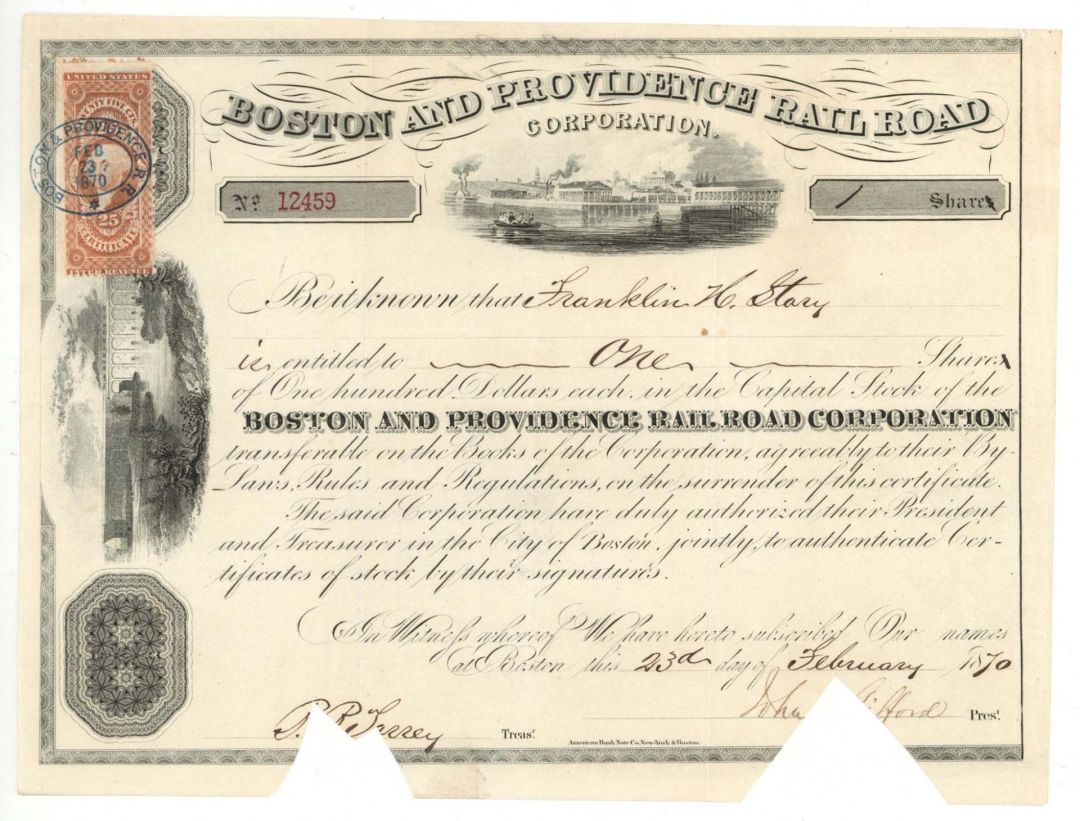 BOSTON AND PROVIDENCE RAIL ROAD
CORPORATION.
UNITED STATES
25
CERTIFICATE
INTER. REVENUE
BOSTON & PROVIDENCE R. R.
FEB
23
1870
No 12459
1 Shares
Be it known that Franklin H. Story
is entitled to One Shares
of One hundred Dollars each, in the Capital Stock of the
BOSTON AND PROVIDENCE RAIL ROAD CORPORATION
transferable on the Books of the Corporation, agreeably to their By-
Laws, Rules and Regulations, on the surrender of this certificate.
The said Corporation have duly authorized their President
and Treasurer in the City of Boston, jointly, to authenticate Cer-
tificates of stock by their signatures.
In Witness whereof We have hereto subscribed Our names
at Boston this 23d day of February 1870
John Clifford Prest.
Treasr.
American Bank Note Co. New-York & Boston.